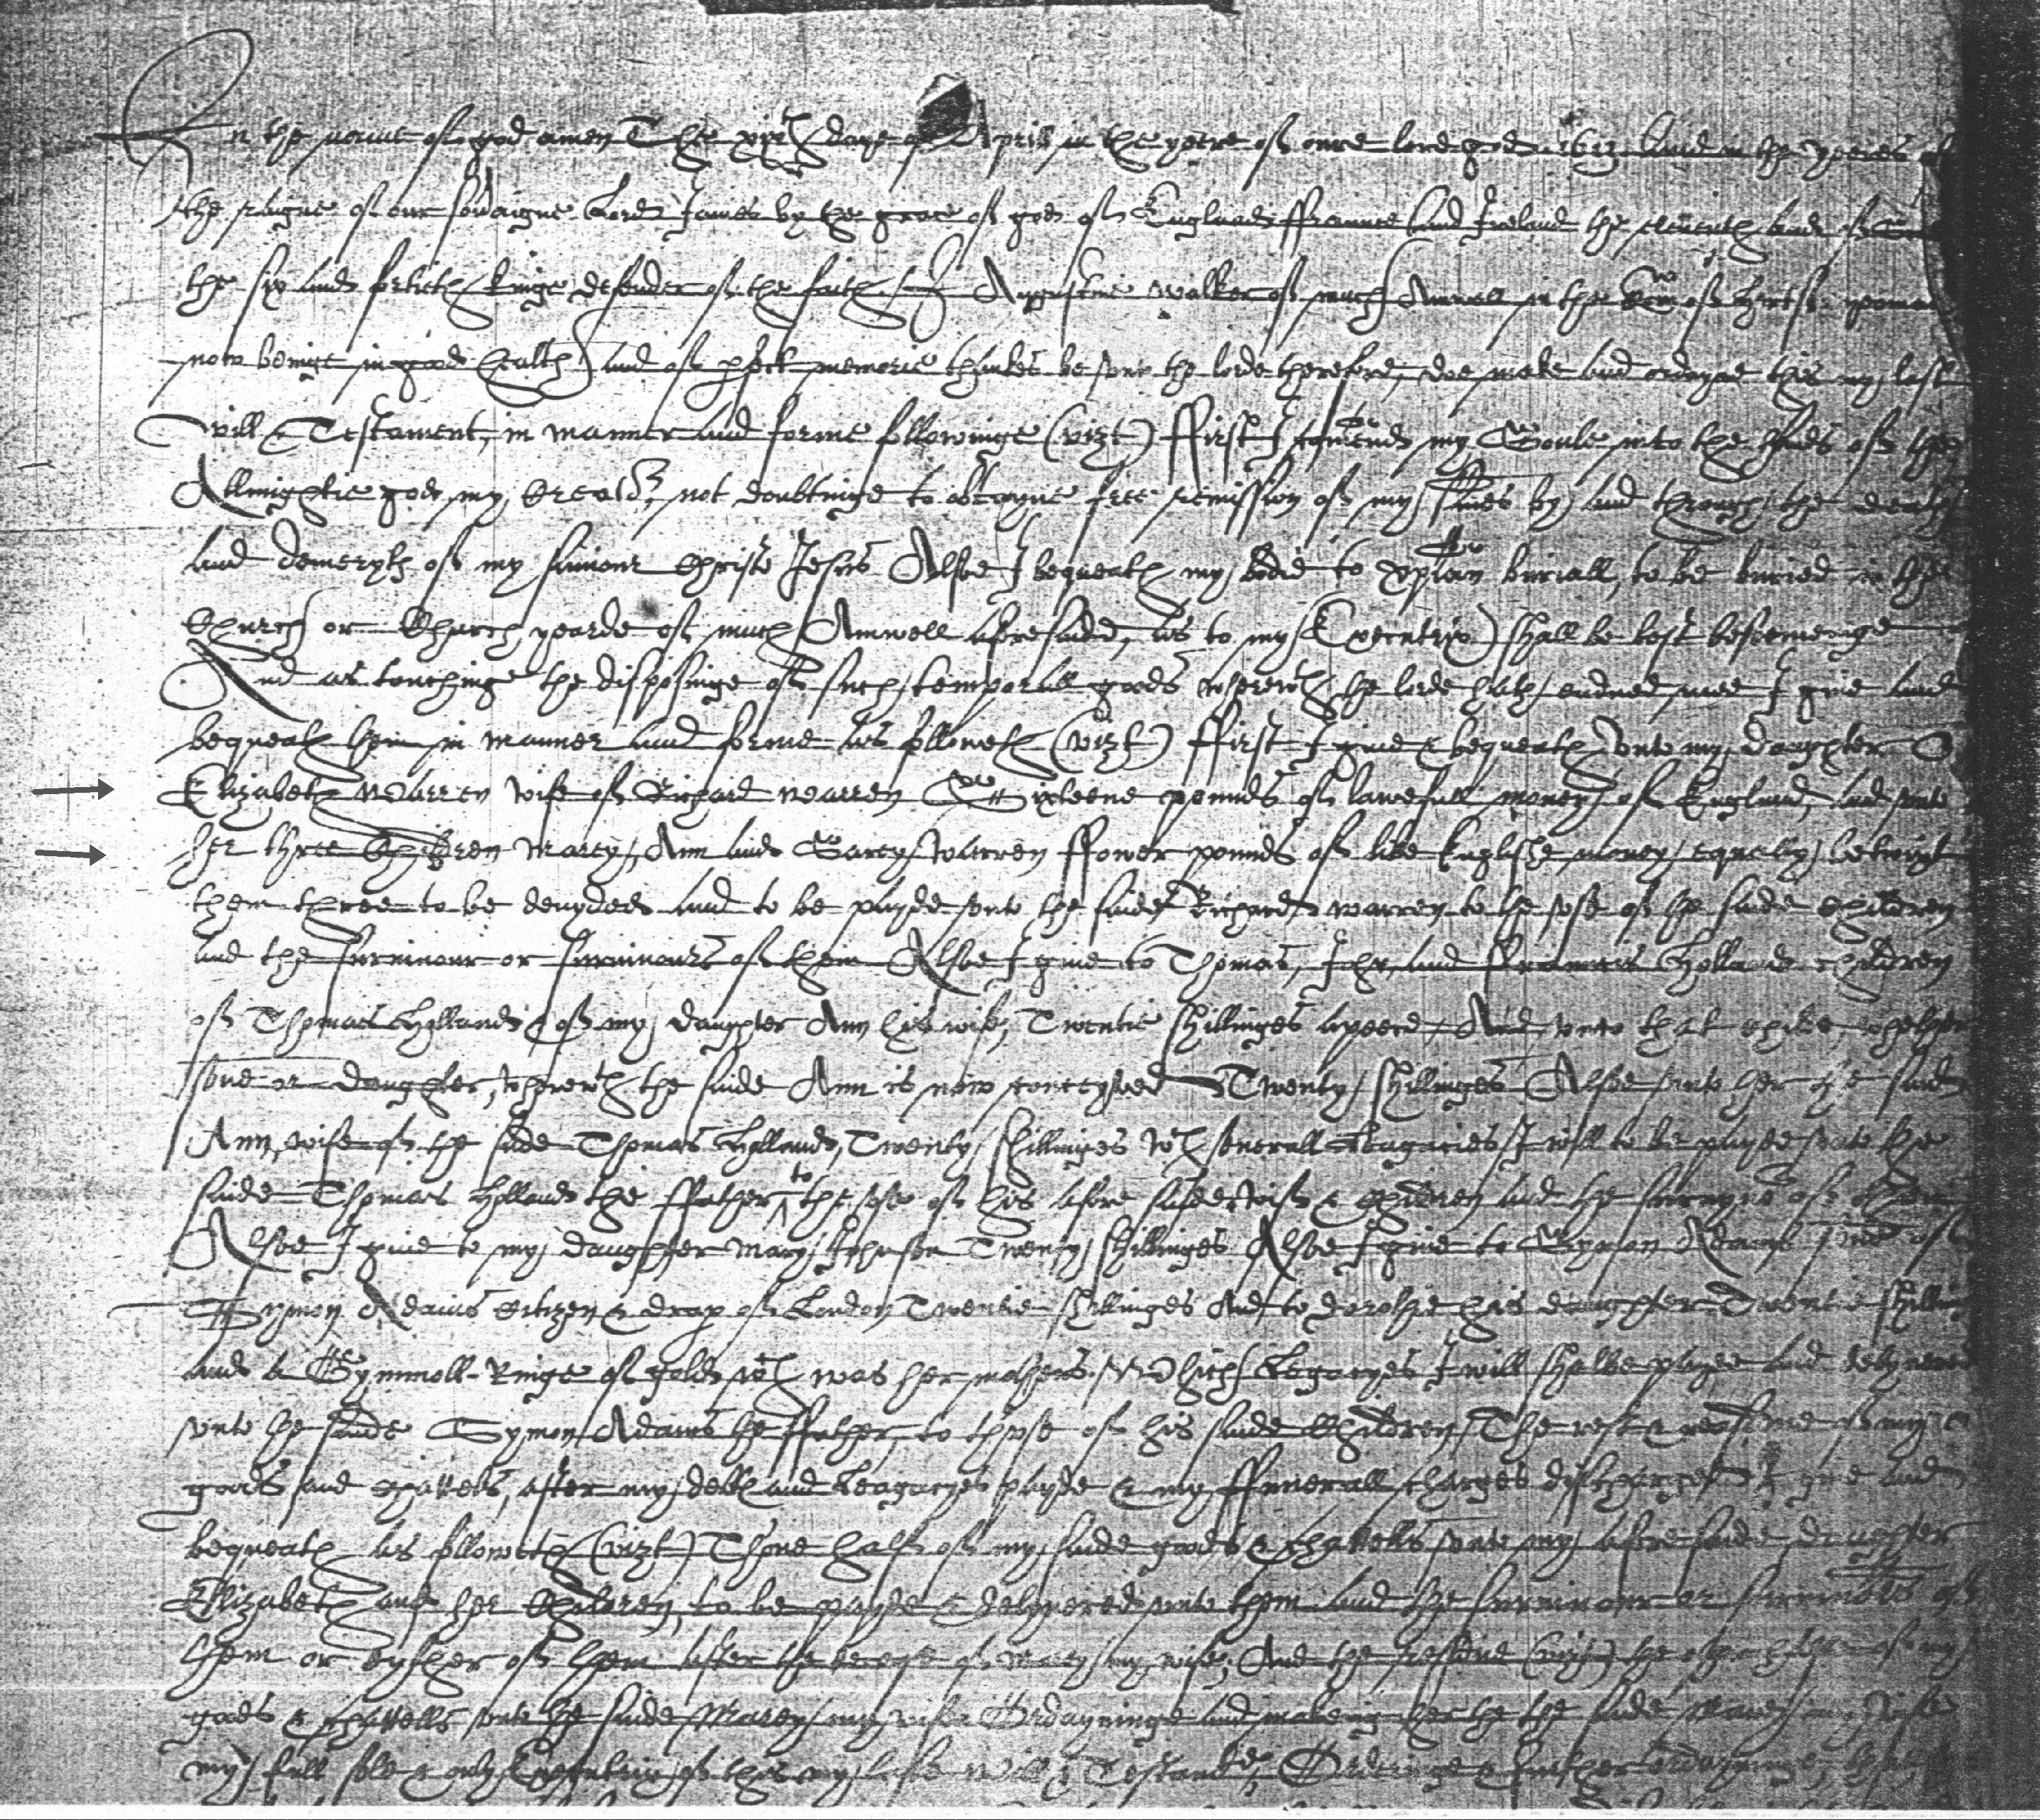 In the name of god amen The xixth daye of Aprill in the yeere of oure lord god 1613 And in the yeeres of
the raigne of our soveraigne Lord James by the grace of god of England ffraunce And Ireland the eleventh And of
the six and fortieth Kinge defender of the faith I Augustine walker of much Amwell in the Com of Hertf yoman
now beinge in good health And of pfect memorie thankes be unto the lorde therefore, doe make And ordayne this my last
will & Testament, in manner And forme followinge (vizt) ffirst I comend my Soule into the hands of the
Allmightie god my Creator, not doubtinge to obtayne free remission of my sines by And through the death
And demeryts of my saviour Christe Jesus Alsoe I bequeath my bodie to xpian buriall, to be buried in the
Church or Church yearde of much Amwell Aforesaide, As to my (Executrix) shall be best beseeminge
And as touchinge the disposinge of such temporall goods wherewth the lorde hath endued mee I give And
bequeath them in manner And forme As followeth (vizt) ffirst I give & bequeath unto my daughter
Elizabeth Warren wife of Richard warren Sixteene pounds of lawefull money of England, And unto
her three Children Marey, Ann And Sarey Warren ffower pounds of like Englishe money equaly betwixt
them three to be devyded And to be payde unto the saide Richard warren to the use of the saide children
And the survivour or survivours of them Alsoe I give to Thomas, John, And Frances Holland children
of Thomas Hollands & of my daughter Ann his wife, Twentie shillinges Apeece And unto that childe, whether
sone or daughter, wherewth the saide Ann is now conceyved Twenty shillinges Alsoe unto her the said
Ann, wife of the saide Thomas Holland, Twenty shillinges wch severall Leagacies I will to be payde unto the
saide Thomas Holland the ffather, to the use of his afore saide wife & children And the survyvor of them
Alsoe I give to my daughter Mary Johnson Twenty shillinges Alsoe I give to Symon Adams sone of
Symon Adams Citizen & drap of London Twentie shillinges And to his daughter Twentie shillings
And a Gymmoll Ringe of gold wch was her mothers Which Legacyes I will shalbe payde And delyvered
unto the saide Symon Adams the ffather, to thuse of his saide Children The rest & residue of my
goods and chattels, after my debts And Leagacyes payde & my ffunerall charges discharged I give And
bequeath As followeth (vizt) Thone halfe of my saide goods & chattells unto my afore saide daughter
Elizabeth and her Children, to be payde & delyvered unto them And the survivour or survivours of
them or eyther of them After the decease of Marey my wife, And the (vizt) the other halfe of my
goods & chattells unto the saide Marey my wife Ordayninge And makeing her the the saide Marey my wife
my full sole & only Executrix of this my laste Will & Testamt, Orderinge & further ordayninge,